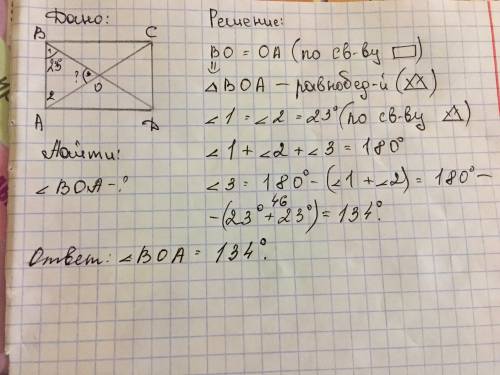 Дано:
B C
1
23°
? O
2
A D
Найти:
∠BOA-?
Решение:
BO = OA (по св-ву ▭)
⇓
△BOA – равнобед-й
∠1 = ∠2 = 23° (по св-ву △)
∠1 + ∠2 + ∠3 = 180°
∠3 = 180° - (∠1 + ∠2) = 180° -
46
- (23° + 23°) = 134°.
Ответ: ∠BOA = 134°.